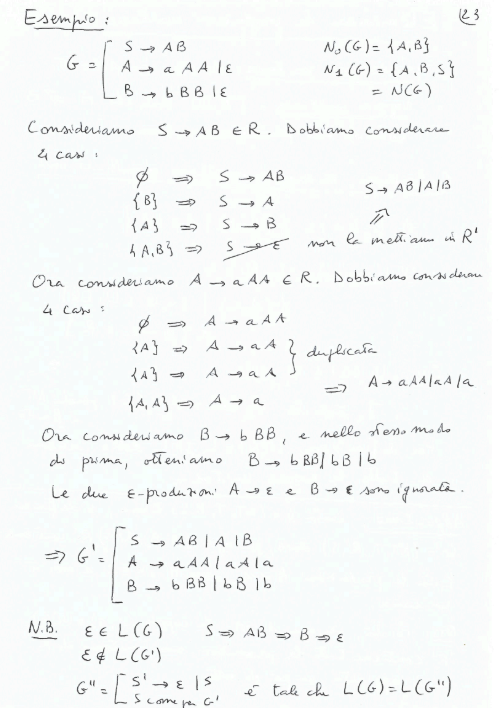 Esempio: 23
S → AB N₀(G) = {A,B}
G = A → aAA | ε N₁(G) = {A,B,S}
B → bBB | ε = N(G)
Consideriamo S → AB ∈ R. Dobbiamo considerare
4 casi:
∅ ⇒ S → AB
{B} ⇒ S → A S → AB | A | B
{A} ⇒ S → B ⇗
{A,B} ⇒ S → ε non la mettiamo in R'
Ora consideriamo A → aAA ∈ R. Dobbiamo considerare
4 casi:
∅ ⇒ A → aAA
{A} ⇒ A → aA } duplicata
{A} ⇒ A → aA
⇒ A → aAA | aA | a
{A,A} ⇒ A → a
Ora consideriamo B → bBB, e nello stesso modo
di prima, otteniamo B → bBB | bB | b
Le due ε-produzioni A → ε e B → ε sono ignorate.
S → AB | A | B
⇒ G' = A → aAA | aA | a
B → bBB | bB | b
N.B. ε ∈ L(G) S ⇒ AB ⇒ B ⇒ ε
ε ∉ L(G')
G'' = S' → ε | S è tale che L(G) = L(G'')
S come per G'